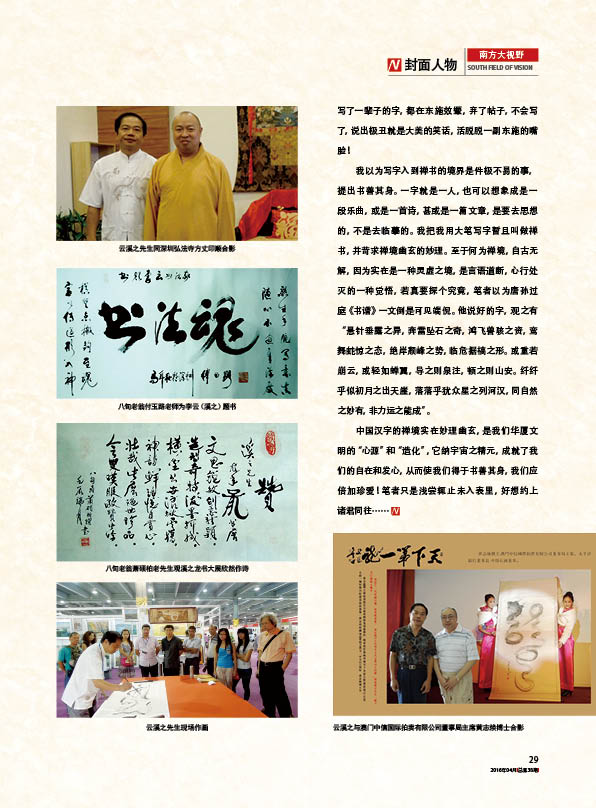 封面人物
南方大视野
SOUTH FIELD OF VISION
云溪之先生同深圳弘法寺方丈印顺合影
书法魂
八旬老翁付玉路老师为李云《溪之》题书
八旬老翁萧硕柏老先生观溪之龙书大展欣然作诗
云溪之先生现场作画
写了一辈子的字，都在东施效颦，弃了帖子，不会写
了，说出极丑就是大美的笑话，活脱脱一副东施的嘴
脸！
我以为写字入到禅书的境界是件极不易的事，
提出书善其身。一字就是一人，也可以想象成是一
段乐曲，或是一首诗，甚或是一篇文章，是要去思想
的，不是去临摹的。我把我用大笔写字暂且叫做禅
书，并苛求禅境幽玄的妙理。至于何为禅境，自古无
解，因为实在是一种灵虚之境，是言语道断，心行处
灭的一种觉悟，若真要探个究竟，笔者以为唐孙过
庭《书谱》一文倒是可见端倪。他说好的字，观之有
“悬针垂露之异，奔雷坠石之奇，鸿飞兽骇之资，鸾
舞蛇惊之态，绝岸颓峰之势，临危据槁之形。或重若
崩云，或轻如蝉翼，导之则泉注，顿之则山安。纤纤
乎似初月之出天崖，落落乎犹众星之列河汉，同自然
之妙有，非力运之能成”。
中国汉字的禅境实在妙理幽玄，是我们华厦文
明的“心源”和“造化”，它纳宇宙之精元，成就了我
们的自在和发心，从而使我们得于书善其身，我们应
倍加珍爱！笔者只是浅尝辄止未入表里，好想约上
诸君同往……
天下第一龙
云溪之与澳门中信国际拍卖有限公司董事局主席黄志燊博士合影
29
2016年04月总第35期